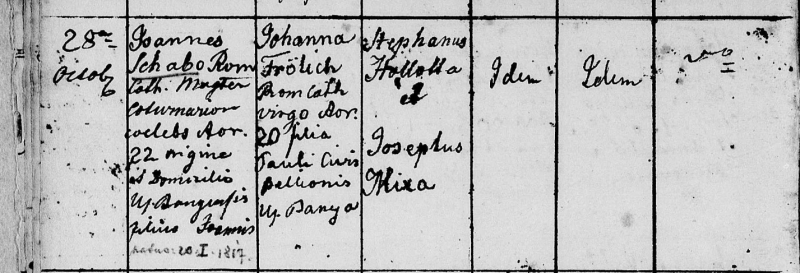 28a
Octob
Joannes
Schabo Rom
Cath. Magter
Coturnarior
coelebs Aor.
22 origine
et Domicilio
Uj Banyensis
filius Joannis
natus 20. I. 1817.
Johanna
Frölich
Rom Cath
virgo Aor.
20 filia
Pauli Civis
Pellionis
Uj Banya
Stephanus
Hollotta
et
Josephus
Mixa
Idem
Idem